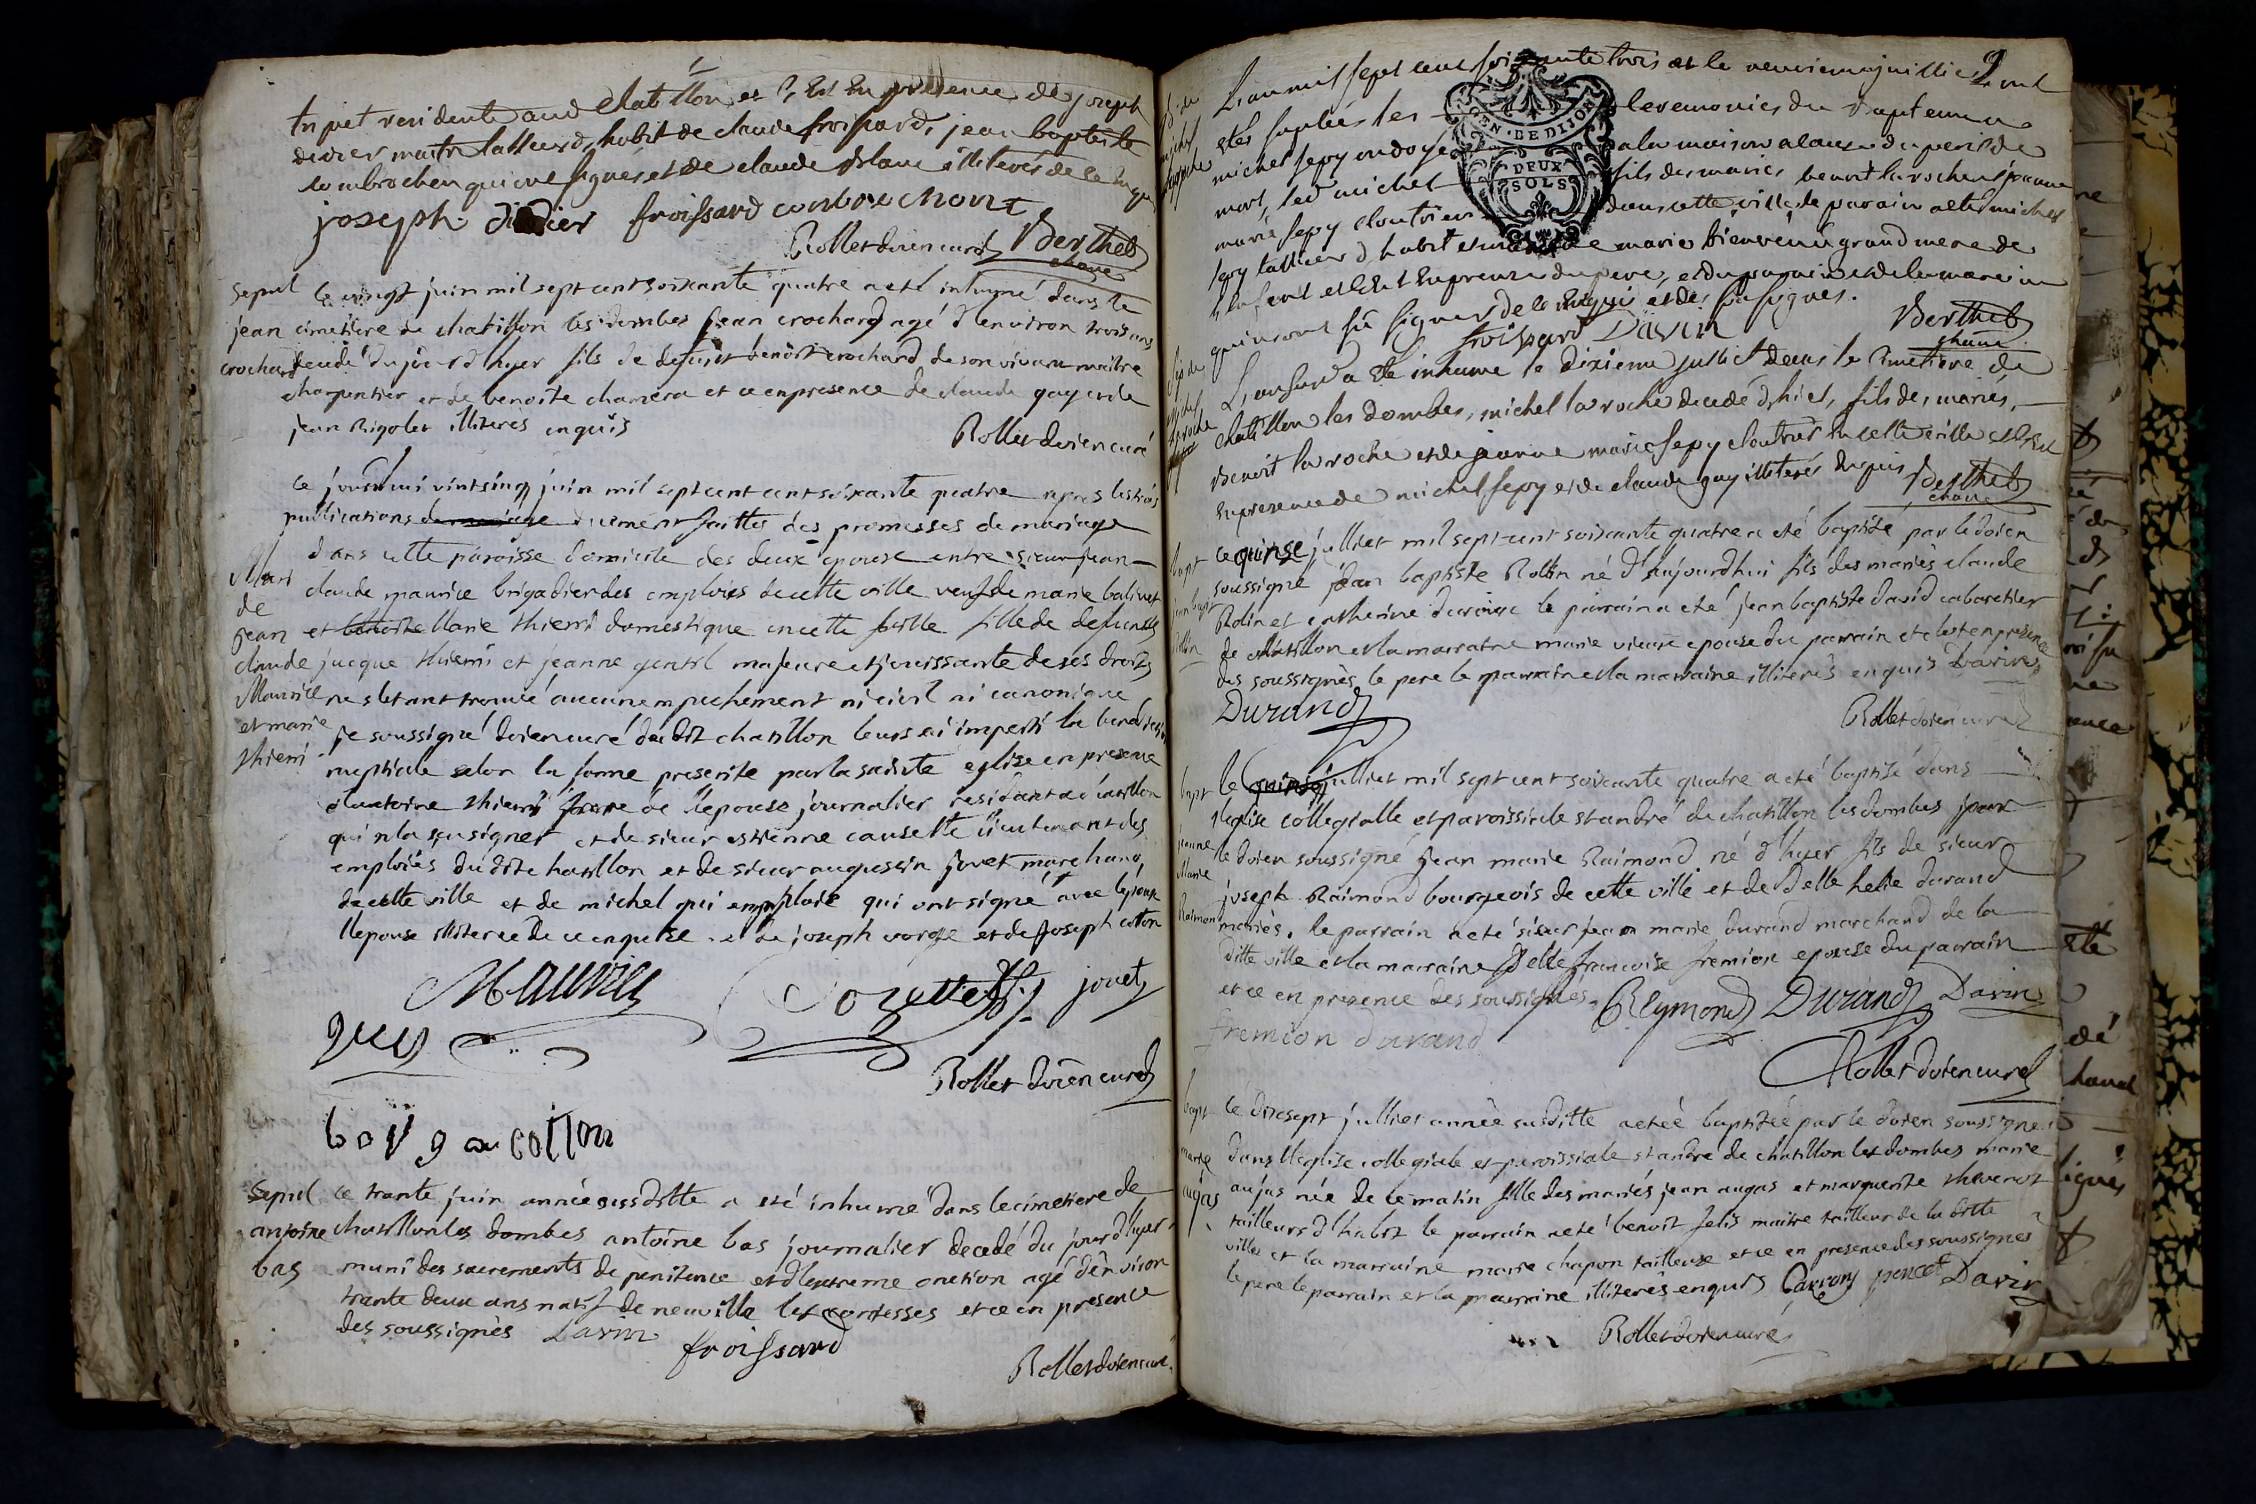 tripet residente aud chatillon et C'est en presence de joseph
didier maitre tailleur d'habit de claude froissard, jean baptiste
combrochen qui ont signés et de claude blanc illiterés de ce enquis
joseph didier froissard conbrochont
Rollet doien curé Berthet
chane
Sepul
jean
crochard
ce vingt juin mil sept cent soixante quatre a eté inhumé dans le
cimetiere de chatillon les dombes jean crochard agé d'environ trois ans
decedé du jour d'hyer fils de defunt benoit crochard de son vivant maitre
charpentier et de benoite chanera et ce en presence de claude guy et de
jean Rigolet illiterés enquis
Rollet doien curé
ce jourd'hui vintsinq juin mil sept cent cent soixante quatre apres les trois
publications de mariage duement faittes des promesses de mariage
Mari
de
jean
claude
Maurice
et marie
thierri
dans cette paroisse domicile des deux epoux entre sieur jean
claude maurice brigadier des emploiés de cette ville veuf de marie balivet
et benoite Marie thierri domestique en cette ville fille de defunts
jacque thierri et jeanne gentil majeure et jouissante de ses droits
ne s'etant trouvé aucun empechement ni civil ni canonique
je soussigné doien curé dudit chatillon leurs ai imparti la benediction
nuptiale selon la forme prescrite par la sainte eglise en presence
d'antoine thierri frere de l'epouse journalier residant a chatillon
qui n'a sçu signer et de sieur estienne causette lieutenant des
emploiés dudit chatillon et de sieur augustin jovet marchand
de cette ville et de michel gui emploié qui ont signé avec l'epoux
l'epouse illiterée de ce enquise et de joseph vorge et de joseph cotton
Maurice Cozette jouet
guy
Rollet doien curé
cotton
Sepul
antoine
bas
ce trante juin année susditte a eté inhumé dans le cimetiere de
chatillon les dombes antoine bas journalier decedé du jour d'hyer
muni des sacrements de penitence et d'extreme onction agé d'environ
trante deux ans natif de neuville les comtesses et ce en presence
des soussignés Davin
froissard
Rollet doien curé
2
L'an mil sept cent soixante trois et le neuvieme juillet ont
etés suplées les ceremonies du bapteme a
michel sepy ondoyé a la maison a cause du peril de
mort, led michel fils des mariés benoit laroche et jeanne
marie sepy cloutriers dans cette ville, le parain a eté michel
sepy tailleur d'habit et marraine marie bienvenu grand mere de
l'enfant et c'est en presence du pere, et du parain et de la mareine
qui n'ont sû signer de ce enquis et des soussignés.
froissard Davin Berthet
chane
GEN. DE DIJON
DEUX
SOLS
L'an susd a eté inhumé le dixieme juillet dans le cimetiere de
chatillon les dombes, michel laroche decedé d'hiet, fils des mariés,
benoit laroche et de jeanne marie sepy cloutriers en cette ville et c'est
en presence de michel sepy et de claude guy illiterés enquis Berthet
chane
bapt
jean bapt
rollin
ce quinse juillet mil sept cent soixante quatre a eté baptisé par le doien
soussigné jean baptiste Rollin né d'aujourd'hui fils des mariés claude
Rolin et catherine le parrain a eté jean baptiste david cabaretier
de chatillon et la marraine marie vieux epouse du parrain et c'est en presence
des soussignés le pere le parrain et la marraine illiterés enquis Davin
Durand
Rollet doien curé
bapt
jeanne
Marie
Raimond
le quinse juillet mil sept cent soixante quatre a eté baptisé dans
l'eglise collegialle et paroissiale st andré de chatillon les dombes par
le doien soussigné jean marie Raimond né d'hyer fils de sieur
joseph Raimond bourgeois de cette ville et de delle helie durand
mariés, le parrain a eté sieur jean marie durand marchand de la
ditte ville et la marraine delle francoise fremion epouse du parrain
et ce en presence des soussignés. Reymond Durand Davin
fremion durand
Rollet doien curé
bapt
marie
aujas
ce disept juillet année susditte a eté baptisée par le doien soussigné
dans l'eglise collegiale et paroissiale st andré de chatillon les dombes marie
aujas née de ce matin fille des mariés jean augas et marguerite thevenot
tailleurs d'habit le parrain a eté benoit felis maitre tailleur de la ditte
ville et la marraine marie chapon tailleuse et ce en presence des soussignés
le pere le parrain et la marraine illiterés enquis Carrony poncet Davin
Rollet doien curé